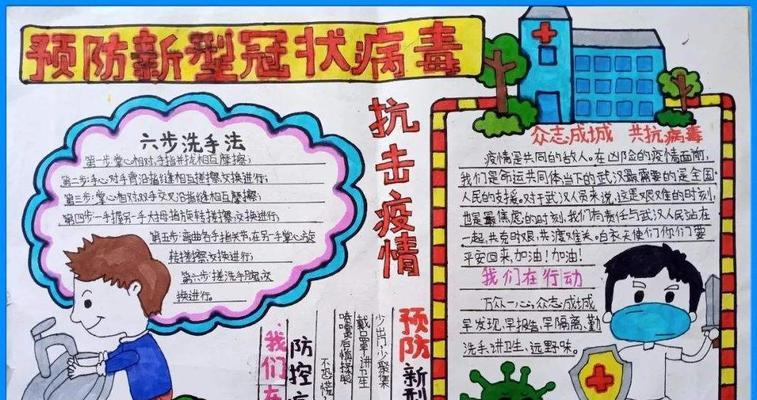 预防新型冠状病毒
六步洗手法
第一步:掌心相对,手指并拢相互摩擦;
第二步:手心对手背沿指缝相互搓擦,交换进行;
第三步:掌心相对,双手交叉沿指缝相互摩擦;
第四步:一手握另一手大拇指旋转搓擦,交换进行;
第五步:弯曲各手指关节,在另一手掌心旋
转搓擦,交换进行;
第六步:搓洗手腕,交
换进行。
抗击疫情
众志成城 共抗病毒
疫情是共同的敌人。在凶险的疫情面前,
我们是命运共同体当下的武汉最需要的是全国
人民的支援。对于武汉人员来说,这是艰难的时刻,
也是最焦虑的时刻,我们有责任与武汉人民站在
一起,共克时艰,共渡难关。白衣天使们你们要
平安回来,加油!加油!
我们在行动
万众一心,众志成城
早发现,早报告,早隔离,勤
洗手,讲卫生,远野味。
预防新型
少出门少聚集
戴口罩讲卫生
喷嚏后慎揉眼
不恐慌
防控
我们在